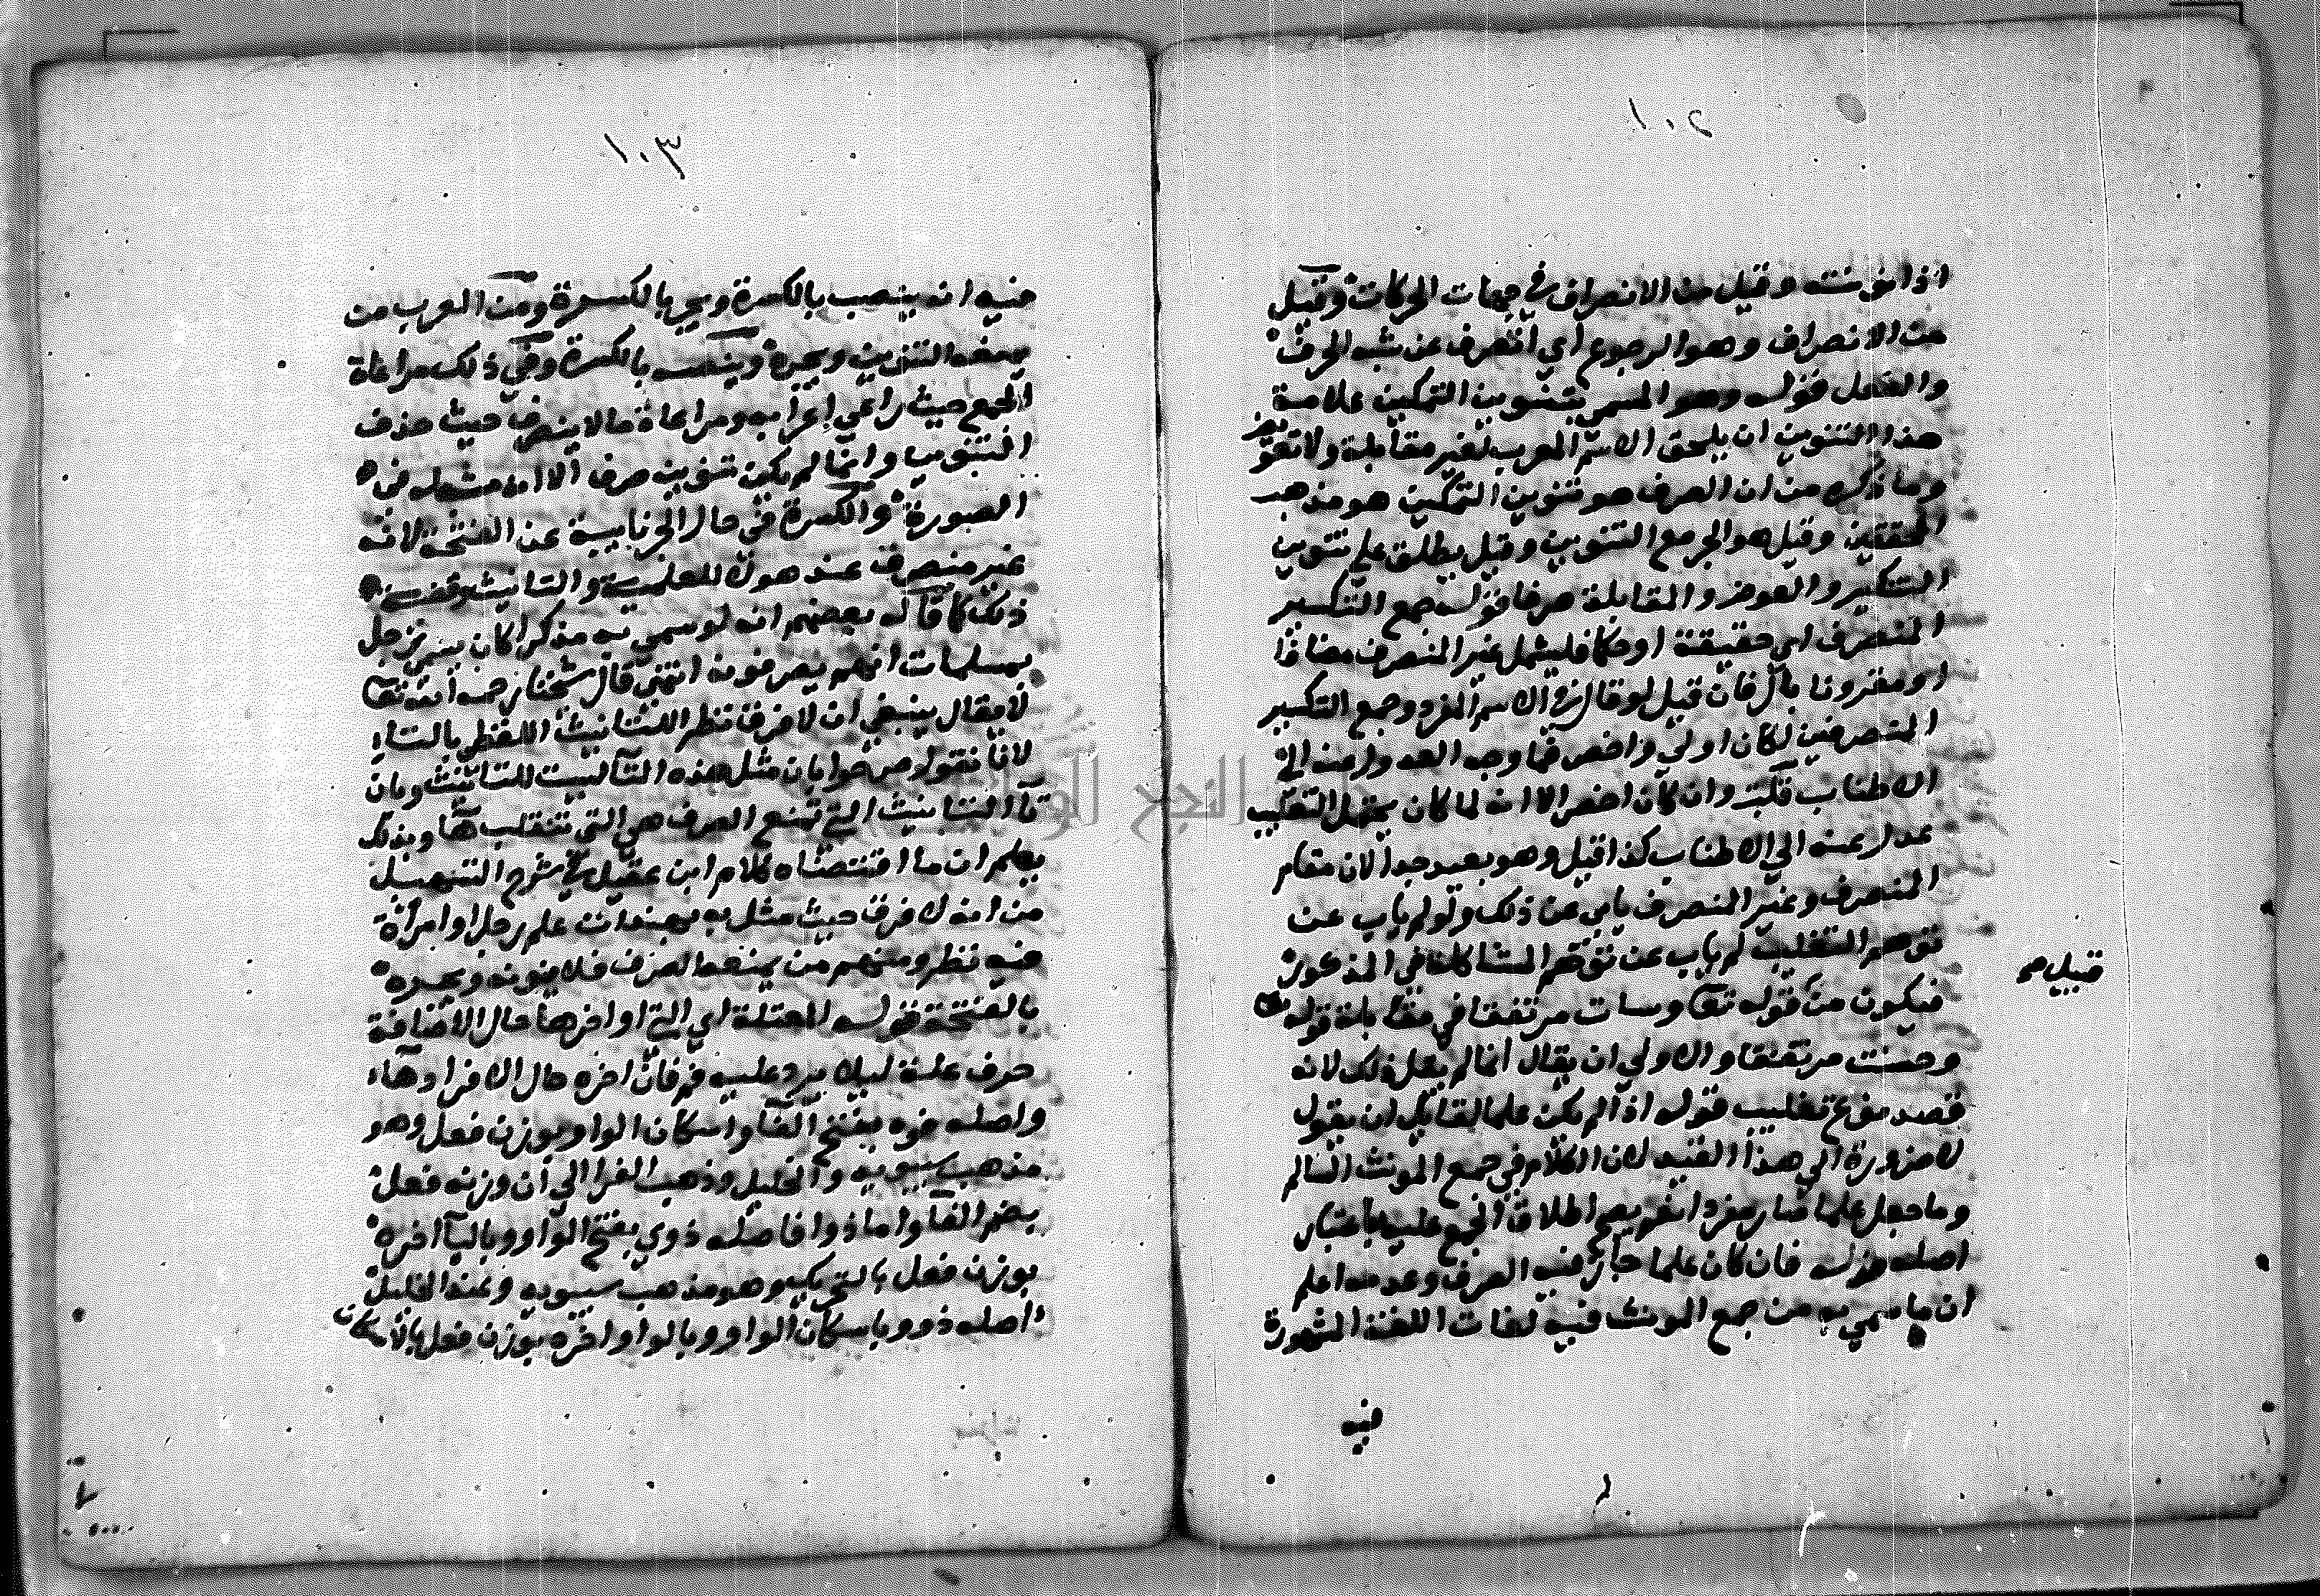 ١٠٢
وقيل من الانصراف في جهات الحركات وقيل
من الانصراف وهو الرجوع اي انصرف عن شبه الحرف
والفعل قوله وهو المسمى بتنوين التمكين علامة
هذا التنوين ان يلحق الاسم المعرب لغير مقابلة ولا تعويض
وما ذكره من ان الصرف هو تنوين التمكين هو مذهب
المحققين وقيل هو الجر مع التنوين وقيل يطلق على تنوين
التنكير والعوض والمقابلة صرفا قوله جمع التكسير
المنصرف اي حقيقة او حكما فليشمل غير المنصرف مضافا
او مقرونا بال فان قيل لو قال في الاسم المفرد وجمع التكسير
المنصرفين لكان اولى واخصر فما وجه العدول عنه الى
الاطناب قلت وان كان اخصر الا انه لما كان يحتمل التغليب
عدل عنه الى الاطناب كذا قيل وهو بعيد جدا لان مقام
المنصرف وغير المنصرف يابى عن ذلك ولو لم ياب عن
توهم التغليب لم ياب عن توهم المشاكلة في المذكور
قبيل صح
فيكون من قوله تعا وسات مرتفقا في مقابلة قوله
وحسنت مرتفقا والاولى ان يقال انما لم يقل ذلك لانه
قصد نوع تغليب قوله اذا لم يكن علما لقايل ان يقول
لا ضرورة الى هذا القيد لان الكلام في جمع المونث السالم
وما جعل علما صار مفردا نعم يصح اطلاق الجمع عليه باعتبار
اصله قوله فان كان علما جاز فيه الصرف وعدمه اعلم
ان ما سمي به من جمع المونث فيه لغات اللغة المشهورة
فيه
١٠٣
فيه انه ينصب بالكسرة ويجر بالكسرة ومن العرب من
يمنعه التنوين ويجره وينصبه بالكسرة وفي ذلك مراعاة
الجمع حيث راعى اعرابه ومراعاة مالا ينصرف حيث حذف
التنوين وانما لم يكن تنوين صرف الا انه مشبه له في
الصورة والكسرة في حال الجر نايبة عن الفتحة لانه
غير منصرف عند هولا للعلمية والتانيث وقضية
ذلك كما قاله بعضهم انه لو سمي به مذكرا كان يسمى رجل
بمسلمات انهم يصرفونه انتهى قال شيخنا رحمه الله تعا
لا يقال ينبغي ان لا فرق نظر اللتانيث اللفظي بالتاء
لانا نقول صرحوا بان مثل هذه التا ليست للتانيث وبان
تا التانيث التي تمنع الصرف هي التي تنقلب ها وبذلك
يعلم ان ما اقتضاه كلام ابن عقيل في شرح التسهيل
من انه لا فرق حيث مثل به بهندات علم رجل او امراة
فيه نظر ومنهم من يمنعه الصرف فلا ينونه ويجره
بالفتحة قوله المعتلة اي التي اواخرها حال الاضافة
حرف علة ليلا يرد عليه فم فان اخره حال الافراد هاء
واصله فوه بفتح الفا واسكان الواو بوزن فعل وهو
مذهب سيبويه والخليل وذهب الفرا الى ان وزنه فعل
بضم الفا واما ذوا فاصله ذوي بفتح الواو وباليا اخره
بوزن فعل بالتحريك وهو مذهب سيبويه وعند الخليل
اصله ذوو باسكان الواو وبالواو اخره بوزن فعل بالاسكان